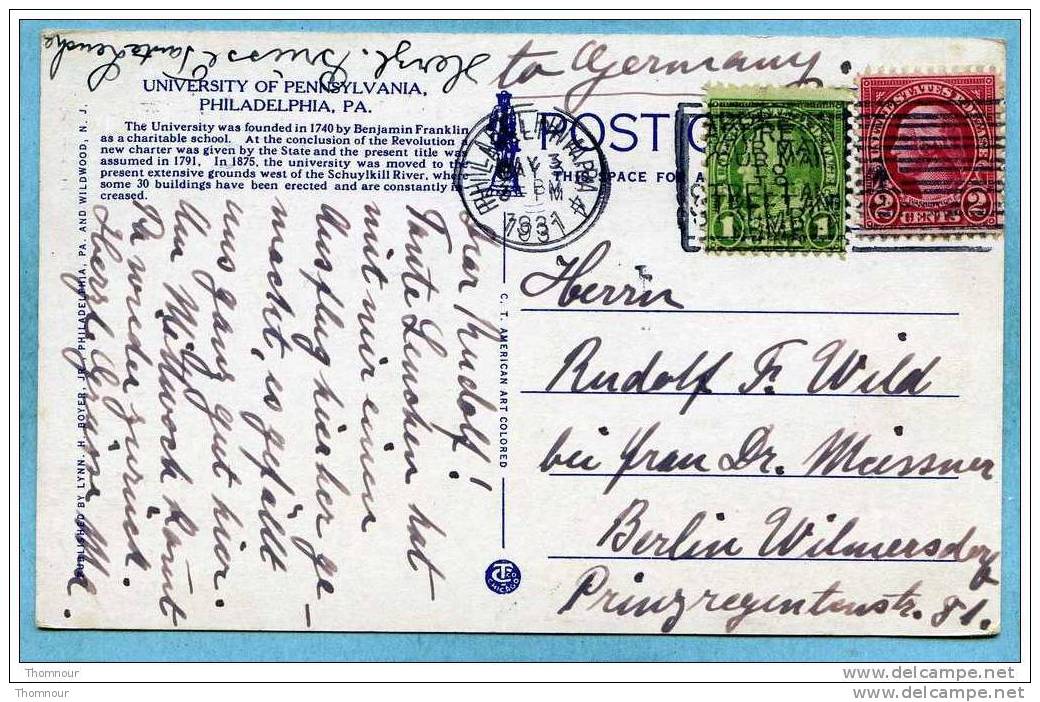 Herzl. Grüsse Tante Lenche
to Germany.
UNIVERSITY OF PENNSYLVANIA,
PHILADELPHIA, PA.
The University was founded in 1740 by Benjamin Franklin
as a charitable school. At the conclusion of the Revolution a
new charter was given by the State and the present title was
assumed in 1791. In 1875, the university was moved to the
present extensive grounds west of the Schuylkill River, where
some 30 buildings have been erected and are constantly in-
creased.
POST C
THIS SPACE FOR A
PHILADELPHIA, PA.
MAY 3
PM
1931
4
YOUR MAIL
TO
STREET AND
NUMBER
1 1
UNITED STATES POSTAGE
2 CENTS 2
PUBLISHED BY LYNN H. BOYER, JR., PHILADELPHIA, PA. AND WILDWOOD, N. J.
C. T. AMERICAN ART COLORED
C T CO
CHICAGO
Dear Rudolf!
Tante Lenchen hat
mit mir einen
Ausflug hierher ge-
macht, es gefällt
uns ganz gut hier.
Am Mittwoch kommt
Pa wieder zurück.
Herzl. Grüsse Ma.
Herrn
Rudolf F. Wild
bei Frau Dr. Meissner
Berlin Wilmersdorf
Prinzregentenstr. 81.
Thomnour
Thomnour
www.delcampe.net
www.delcampe.net